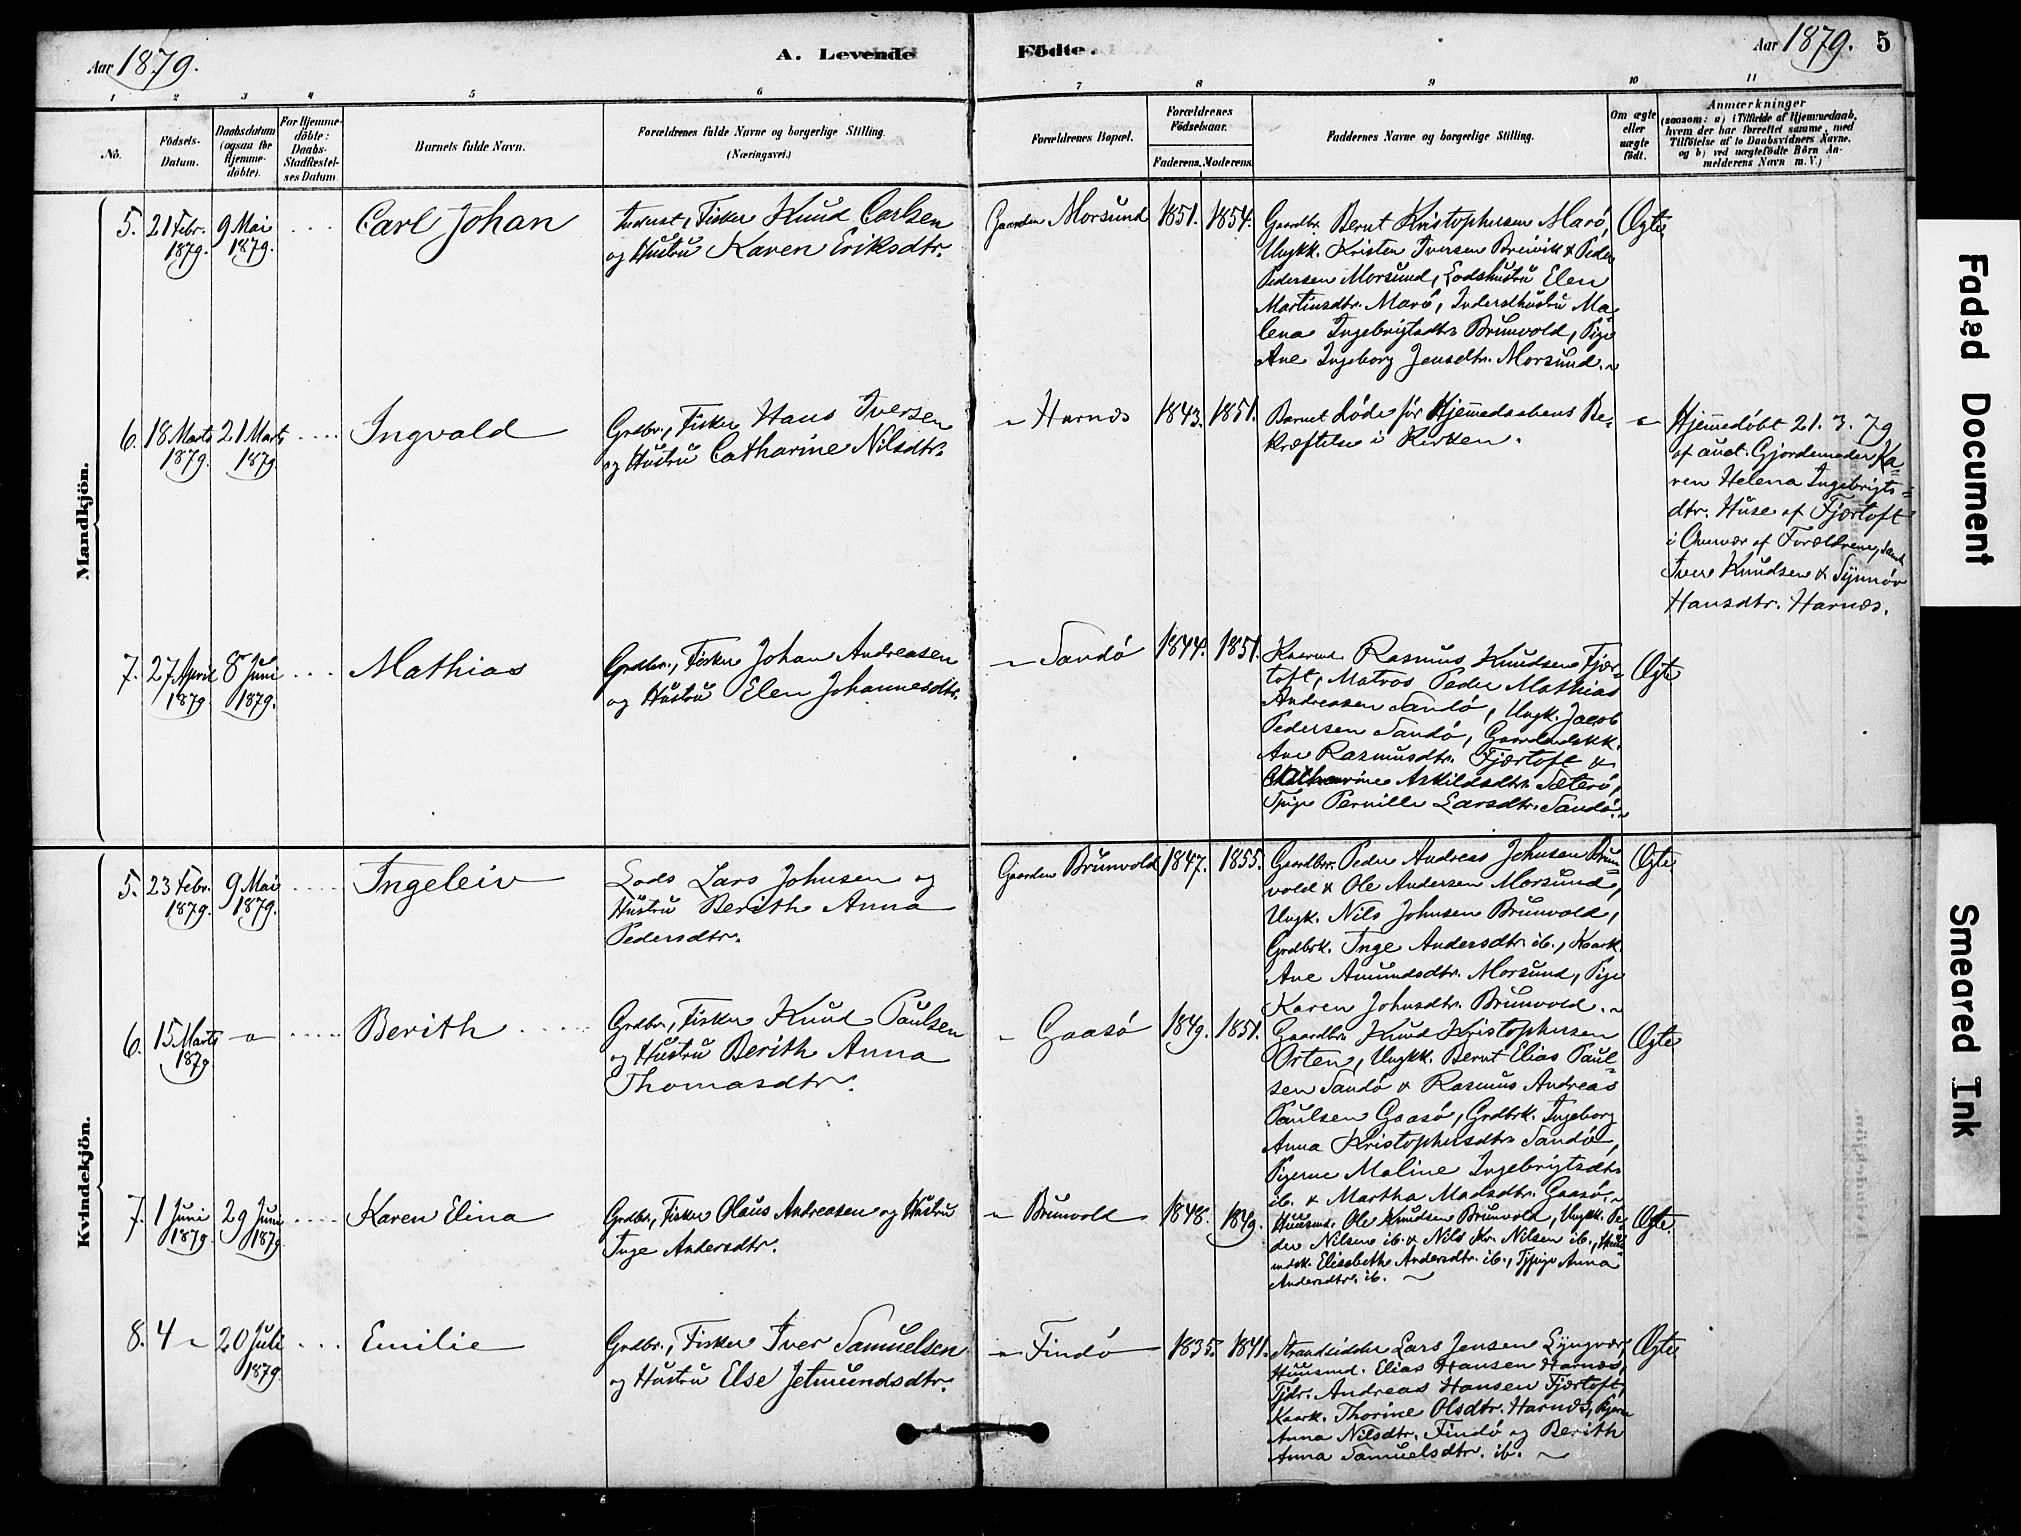 Aar 1879.
A. Levende
Födte.
Aar 1879. 5
1 2 3 4 5 6 7 8 9 10 11
No.
Födsels-
Datum.
Daabsdatum
(ogsaa for
Hjemme-
döbte).
For Hjemme-
döbte:
Daabs-
Stadfæstel-
ses Datum.
Barnets fulde Navn.
Forældrenes fulde Navne og borgerlige Stilling.
(Næringsvei.)
Forældrenes Bopæl.
Forældrenes
Födselsaar.
Faderens. Moderens.
Faddernes Navne og borgerlige Stilling.
Om ægte
eller
uægte
födt.
Anmærkninger
(saasom: a) i Tilfælde af Hjemmedaab,
hvem der har forrettet samme, med
Tilföielse af to Daabsvidners Navne,
og b) ved uægtefödte Börn An-
melderens Navn m. V.)
Mandkjön.
5. 21 Febr. 1879. 9 Mai 1879. Carl Johan
Inderst, Fisker Knud Carlsen
og Hustru Karen Eriksdtr.
Gaarden Morsund 1851. 1854.
Gaardbr. Bernt Kristophersen Marö,
Ungkk. Kristen Iversen Breivik & Peder
Pedersen Morsund, Lodshustru Elen
Martinsdtr. Marö, Indersthustru Ma-
lena Ingebrigtsdtr. Brunvold, Pige
Ane Ingeborg Jensdtr. Morsund.
Ægte
6. 18 Marts 1879. 21 Marts 1879. Ingvald
Grdbr., Fisker Hans Iversen
og Hustru Catharine Nilsdtr.
" Harnæs 1843. 1851.
Barnet döde för Hjemedaabens Be-
kræftelse i Kirken.
"
Hjemedöbt 21. 3. 79
af aud. Gjordemoder Ka-
ren Helena Ingebrigts-
dtr. Huse af Fjærtoft
i Overvær af Forældrene, samt
Iver Knudsen & Synnöv
Hansdtr. Harnæs.
7. 27 April 1879. 8 Juni 1879. Mathias
Grdbr., Fisker Johan Andreasen
og Hustru Elen Johannesdtr.
" Sandö 1844. 1851.
Rasmus Knudsen Fjær-
toft, Matros Peder Mathias
Andreasen Sandö, Ungk. Jacob
Pedersen Sandö,
Ane Rasmusdtr. Fjærtoft &
Catharine Askildsdtr. Sæterö,
Pige Pernille Larsdtr. Sandö.
Ægte
Kvindekjön.
5. 23 Febr. 1879. 9 Mai 1879. Ingeleiv
Lods Lars Johnsen og
Hustru Berith Anna
Pedersdtr.
Gaarden Brunvold 1847. 1855.
Gaardbr. Peder Andreas Johnsen Brun-
vold & Ole Andersen Morsund,
Ungk. Nils Johnsen Brunvold,
Grdbrk. Inge Andersdtr. ib., Kaark.
Ane Amundsdtr. Morsund, Pige
Karen Johnsdtr. Brunvold.
Ægte
6. 15 Marts 1879. " Berith
Grdbr., Fisker Knud Paulsen
og Hustru Berith Anna
Thomasdtr.
" Gaasö 1849. 1851.
Gaardbr. Knud Kristophersen
Orten, Ungkk. Bernt Elias Paul-
sen Sandö & Rasmus Andreas
Paulsen Gaasö, Grdbrk. Ingeborg
Anna Kristophersdtr. Sandö,
Pigerne Maline Ingebrigtsdtr.
ib. & Martha Madsdtr. Gaasö.
Ægte
7. 1 Juni 1879. 29 Juni 1879. Karen Elina
Grdbr., Fisker Olaus Andreasen og Hustru
Inge Andersdtr.
" Brunvold 1848. 1849.
Huusmd. Ole Knudsen Brunvold, Ungkk. Pe-
der Nilsen ib. & Nils Kr. Nilsen ib., Huus-
mdsk. Elisabeth Andersdtr. ib., Tjpige Anna
Andersdtr. ib.
Ægte.
8. 4 " 20 Juli 1879. Emilie
Grdbr., Fisker Iver Samuelsen
og Hustru Else Jetmundsdtr.
" Findö 1835. 1841.
Strandsidder Lars Jensen Lyngvær,
Huusmd. Elias Hansen Harnæs,
Tjdr. Andreas Hansen Fjærtoft,
Kaark. Thorine Olsdtr. Harnæs, Pigerne
Anna Nilsdtr. Findö og Berith
Anna Samuelsdtr. ib.
Ægte
6
Faded Document
Smeared Ink